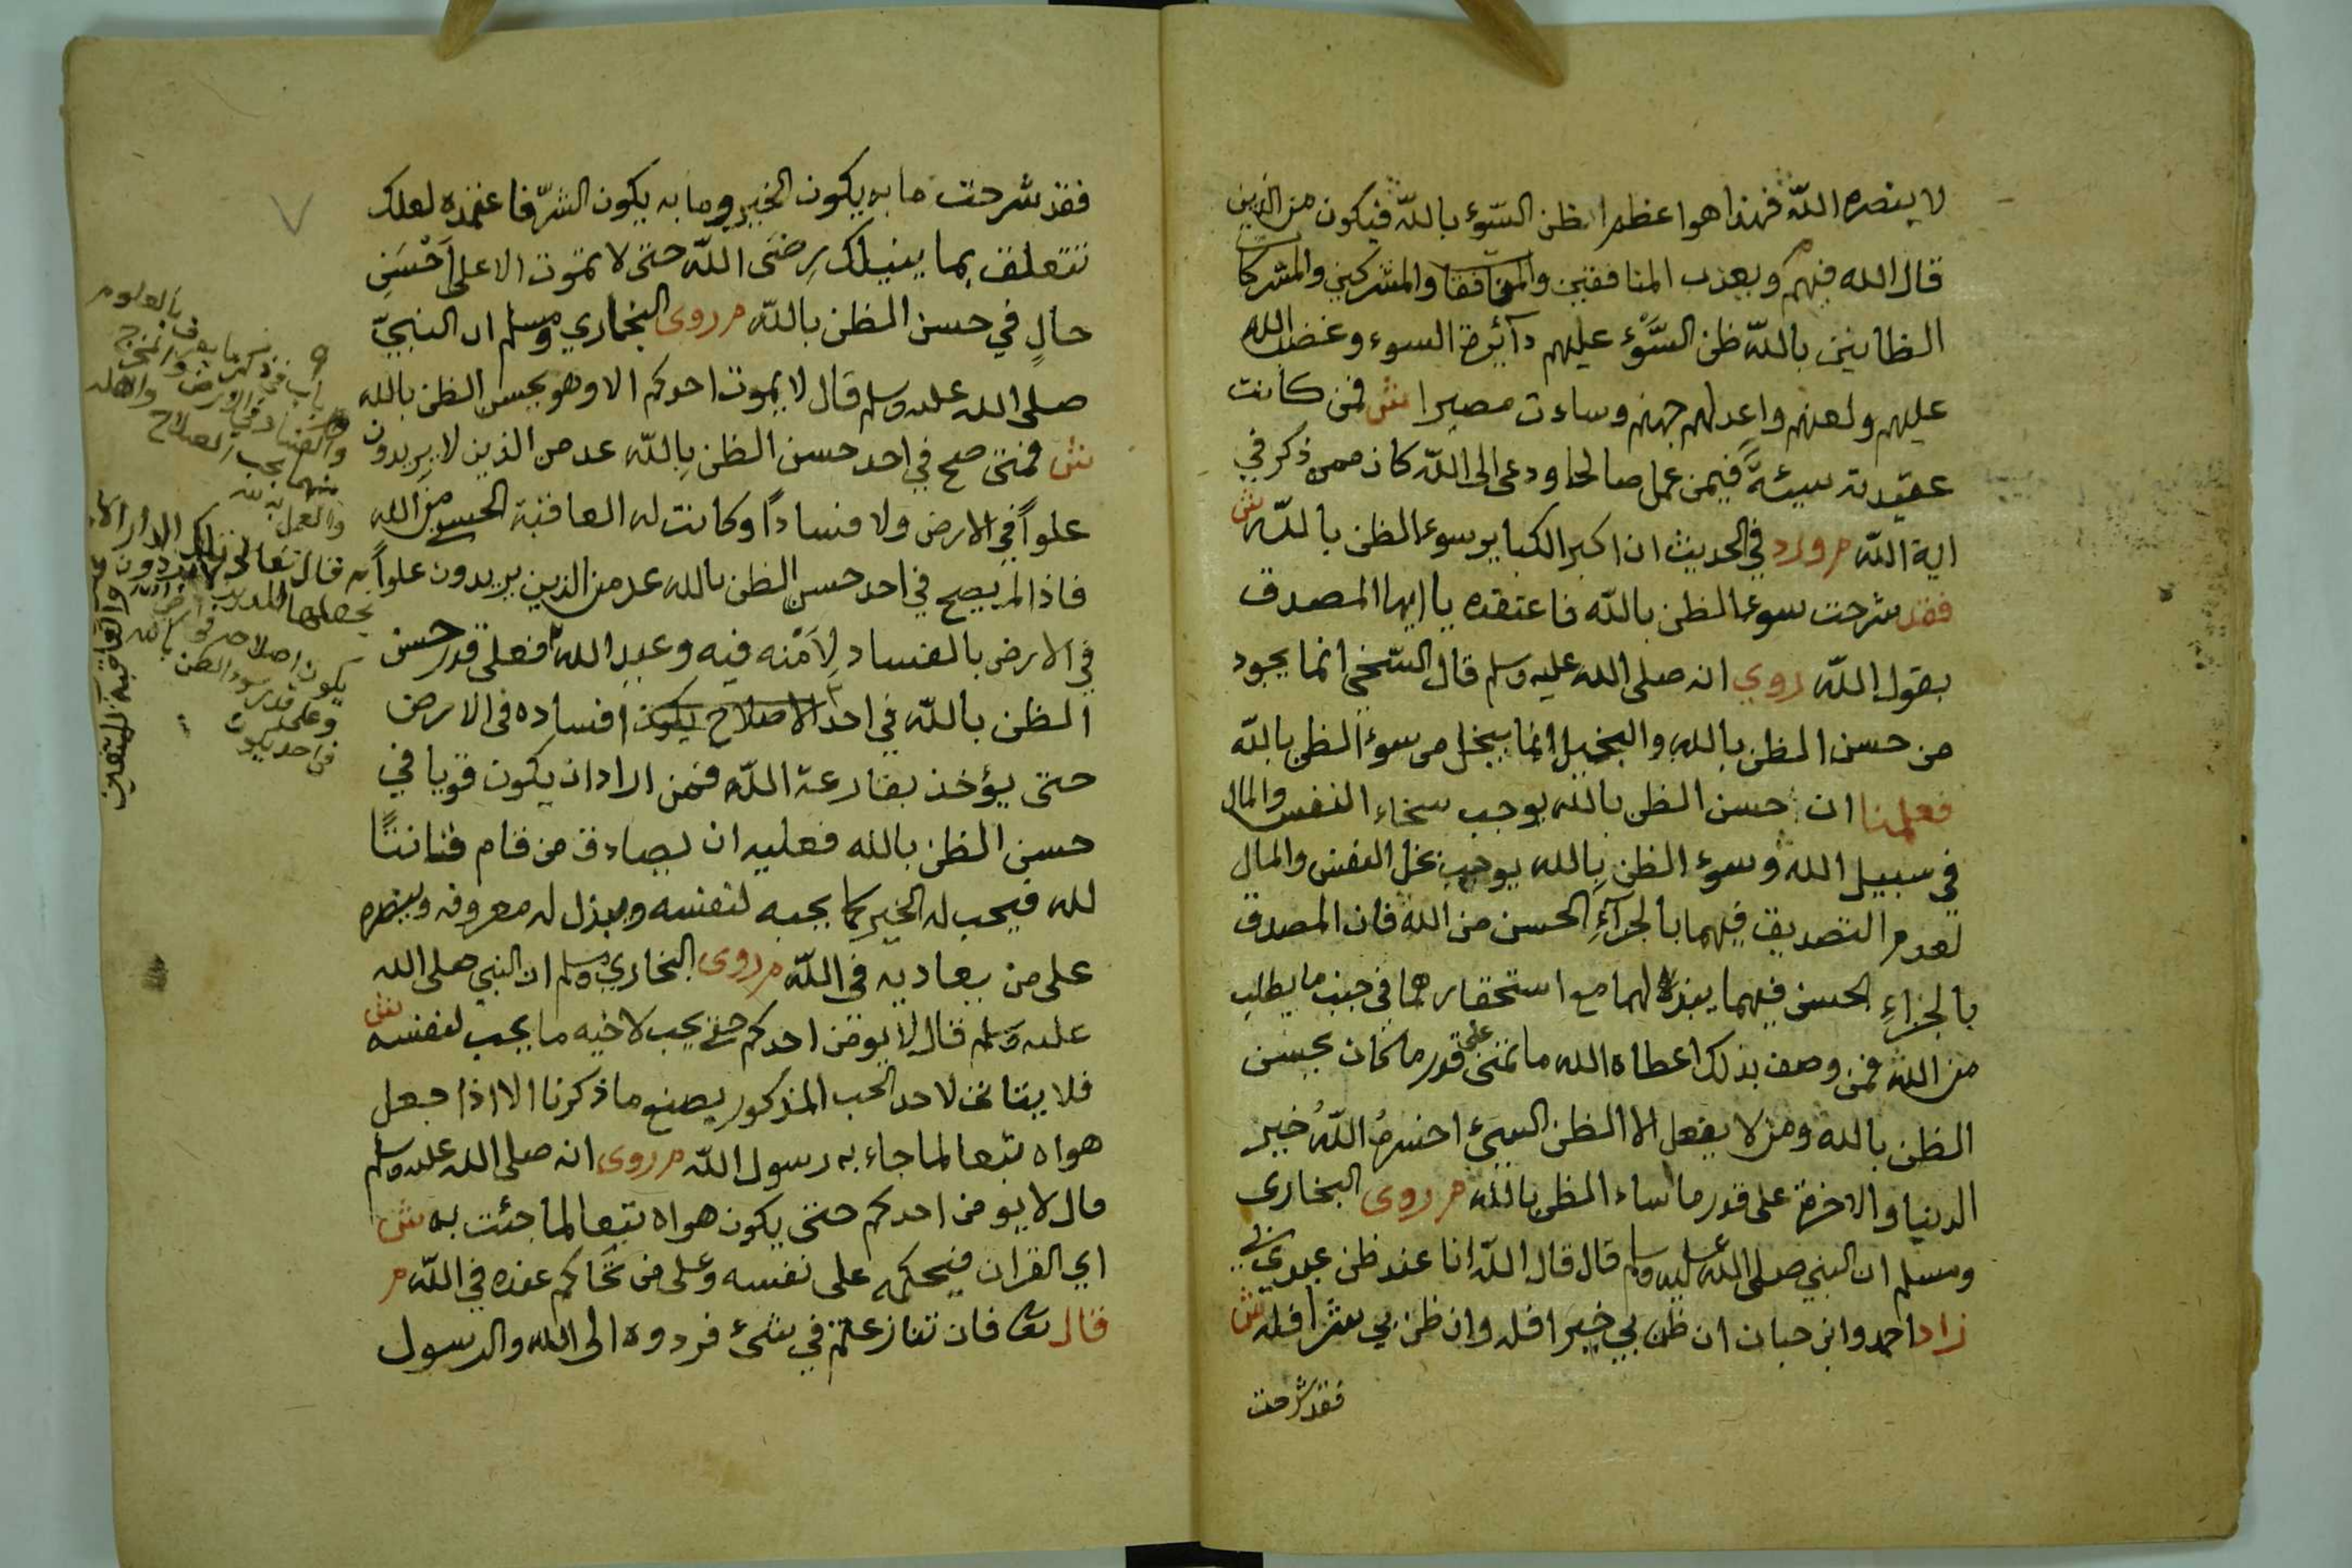 لا ينصره الله فهذا هو اعظم الظن السّوء بالله فيكون من الذين
قال الله فيهم ويعذب المنافقين والمنافقات والمشركين والمشركات
الظانين بالله ظن السَّوْء عليهم دآئرة السوء وغضب الله
عليهم ولعنهم واعد لهم جهنم وساءت مصيرا ش فمن كانت
عقيدته سيئةً فيمن عمل صالحا ودعى الى الله كان ممن ذكر في
اية الله م ورد في الحديث ان اكبر الكباير سوء الظن بالله ش
فقد شرحت سوء الظن بالله فاعتقده يا ايها المصدق
بقول الله روي انه صلى الله عليه وسلم قال السّخي انما يجود
من حسن الظن بالله والبخيل انما يبخل من سوء الظن بالله
فعلمنا ان حسن الظن بالله يوجب سخاء النفس والمال
في سبيل الله وسوء الظن بالله يوجب بخل النفس والمال
لعدم التصديق فيهما بالجزآءِ الحسن من الله فان المصدق
بالجزاءِ الحسن فيهما يبذل لهما مع استحقارهما في جنب ما يطلب
من الله فمن وصف بذلك اعطاه الله ما تمنى على قدر ما كان يحسن
الظن بالله ومن لا يفعل الا الظن السيئ اخسره اللهُ خير
الدنيا والاخرة على قدر ما اساء الظن بالله م روى البخارى
ومسلم ان النبي صلى الله عليه وسلم قال قال الله انا عند ظن عبدي بي
زاد احمد وابن حبان ان ظن بي خيرا فله وان ظن بي شرا فله ش
فقد شرحت
فقد شرحت ما به يكون الخير وما به يكون الشرّ فاغنمه لعلك
تتعلق بما ينيلك رِضَى الله حتى لا تموت الا على اَحْسَنِ
حالٍ في حسن الظن بالله م روى البخاري ومسلم ان النبيّ
صلى الله عليه وسلم قال لا يموت احدكم الا وهو يحسن الظن بالله
ش فمتى صح في احد حسن الظن بالله عد من الذين لا يريدون
علواً في الارض ولا فساداً وكانت له العاقبة الحسنى من الله
فاذا لم يصح في احد حسن الظن بالله عد من الذين يريدون علواً
في الارض بالفساد لِاَمْنه فيه وعيد الله فعلى قدر حسن
الظن بالله في احد الاصلاح يكون افساده فى الارض
حتى يؤخذ بقارعة الله فمن اراد ان يكون قويا في
حسن الظن بالله فعليه ان يصادق من قام قانتًا
لله فيحب له الخير كما يحبه لنفسه ويبذل له معروفه وينصره
على من يعاديه فى الله م روى البخاري ومسلم ان النبي صلى الله
عليه وسلم قال لا يؤمن احدكم حتى يحب لاخيه ما يحب لنفسه ش
فلا يتاتى لاحد الحب المذكور يصنع ما ذكرنا الا اذا جعل
هواه تبعا لما جاء به رسول الله م روى انه صلى الله عليه وسلم
قال لا يومن احدكم حتى يكون هواه تبعا لما جئت به ش
اي القران فيحكمه على نفسه وعلى من تحاكم عنده في الله م
قال تعالى فان تنازعتم في شىء فردوه الى الله والرسول
باب في ذكر ما يعرف بالعلوم
والفساد في الارض
منهما يجب الصلاح
والعمل به لله
قال تعالى تلك الدار الا
يكون اصلاحه
وعلى قدر سوء الظن بالله
في احد يكون
والعاقبة للمتقين